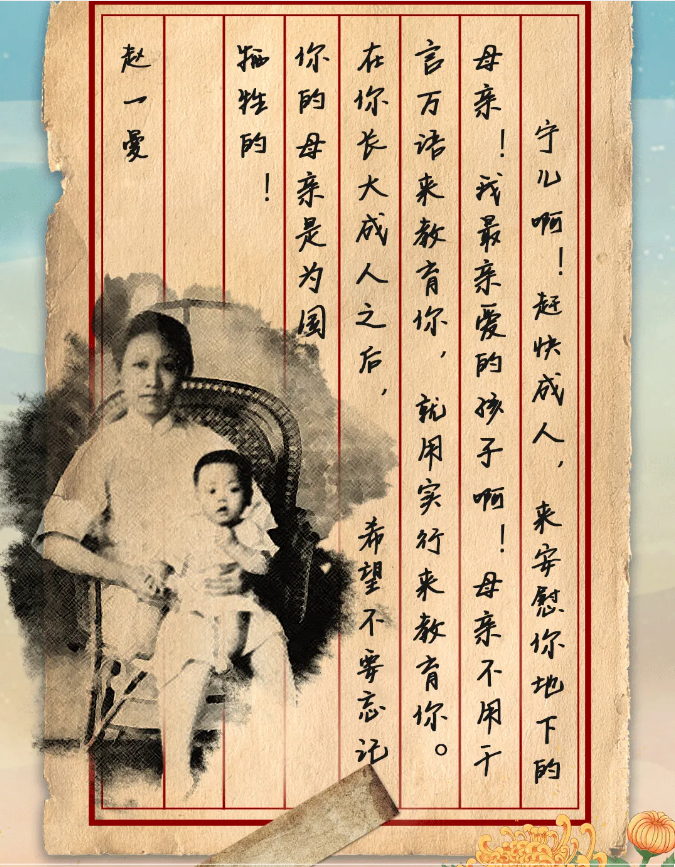 宁儿啊！赶快成人，来安慰你地下的
母亲！我最亲爱的孩子啊！母亲不用千
言万语来教育你，就用实行来教育你。
在你长大成人之后，希望不要忘记
你的母亲是为国
牺牲的！
赵一曼